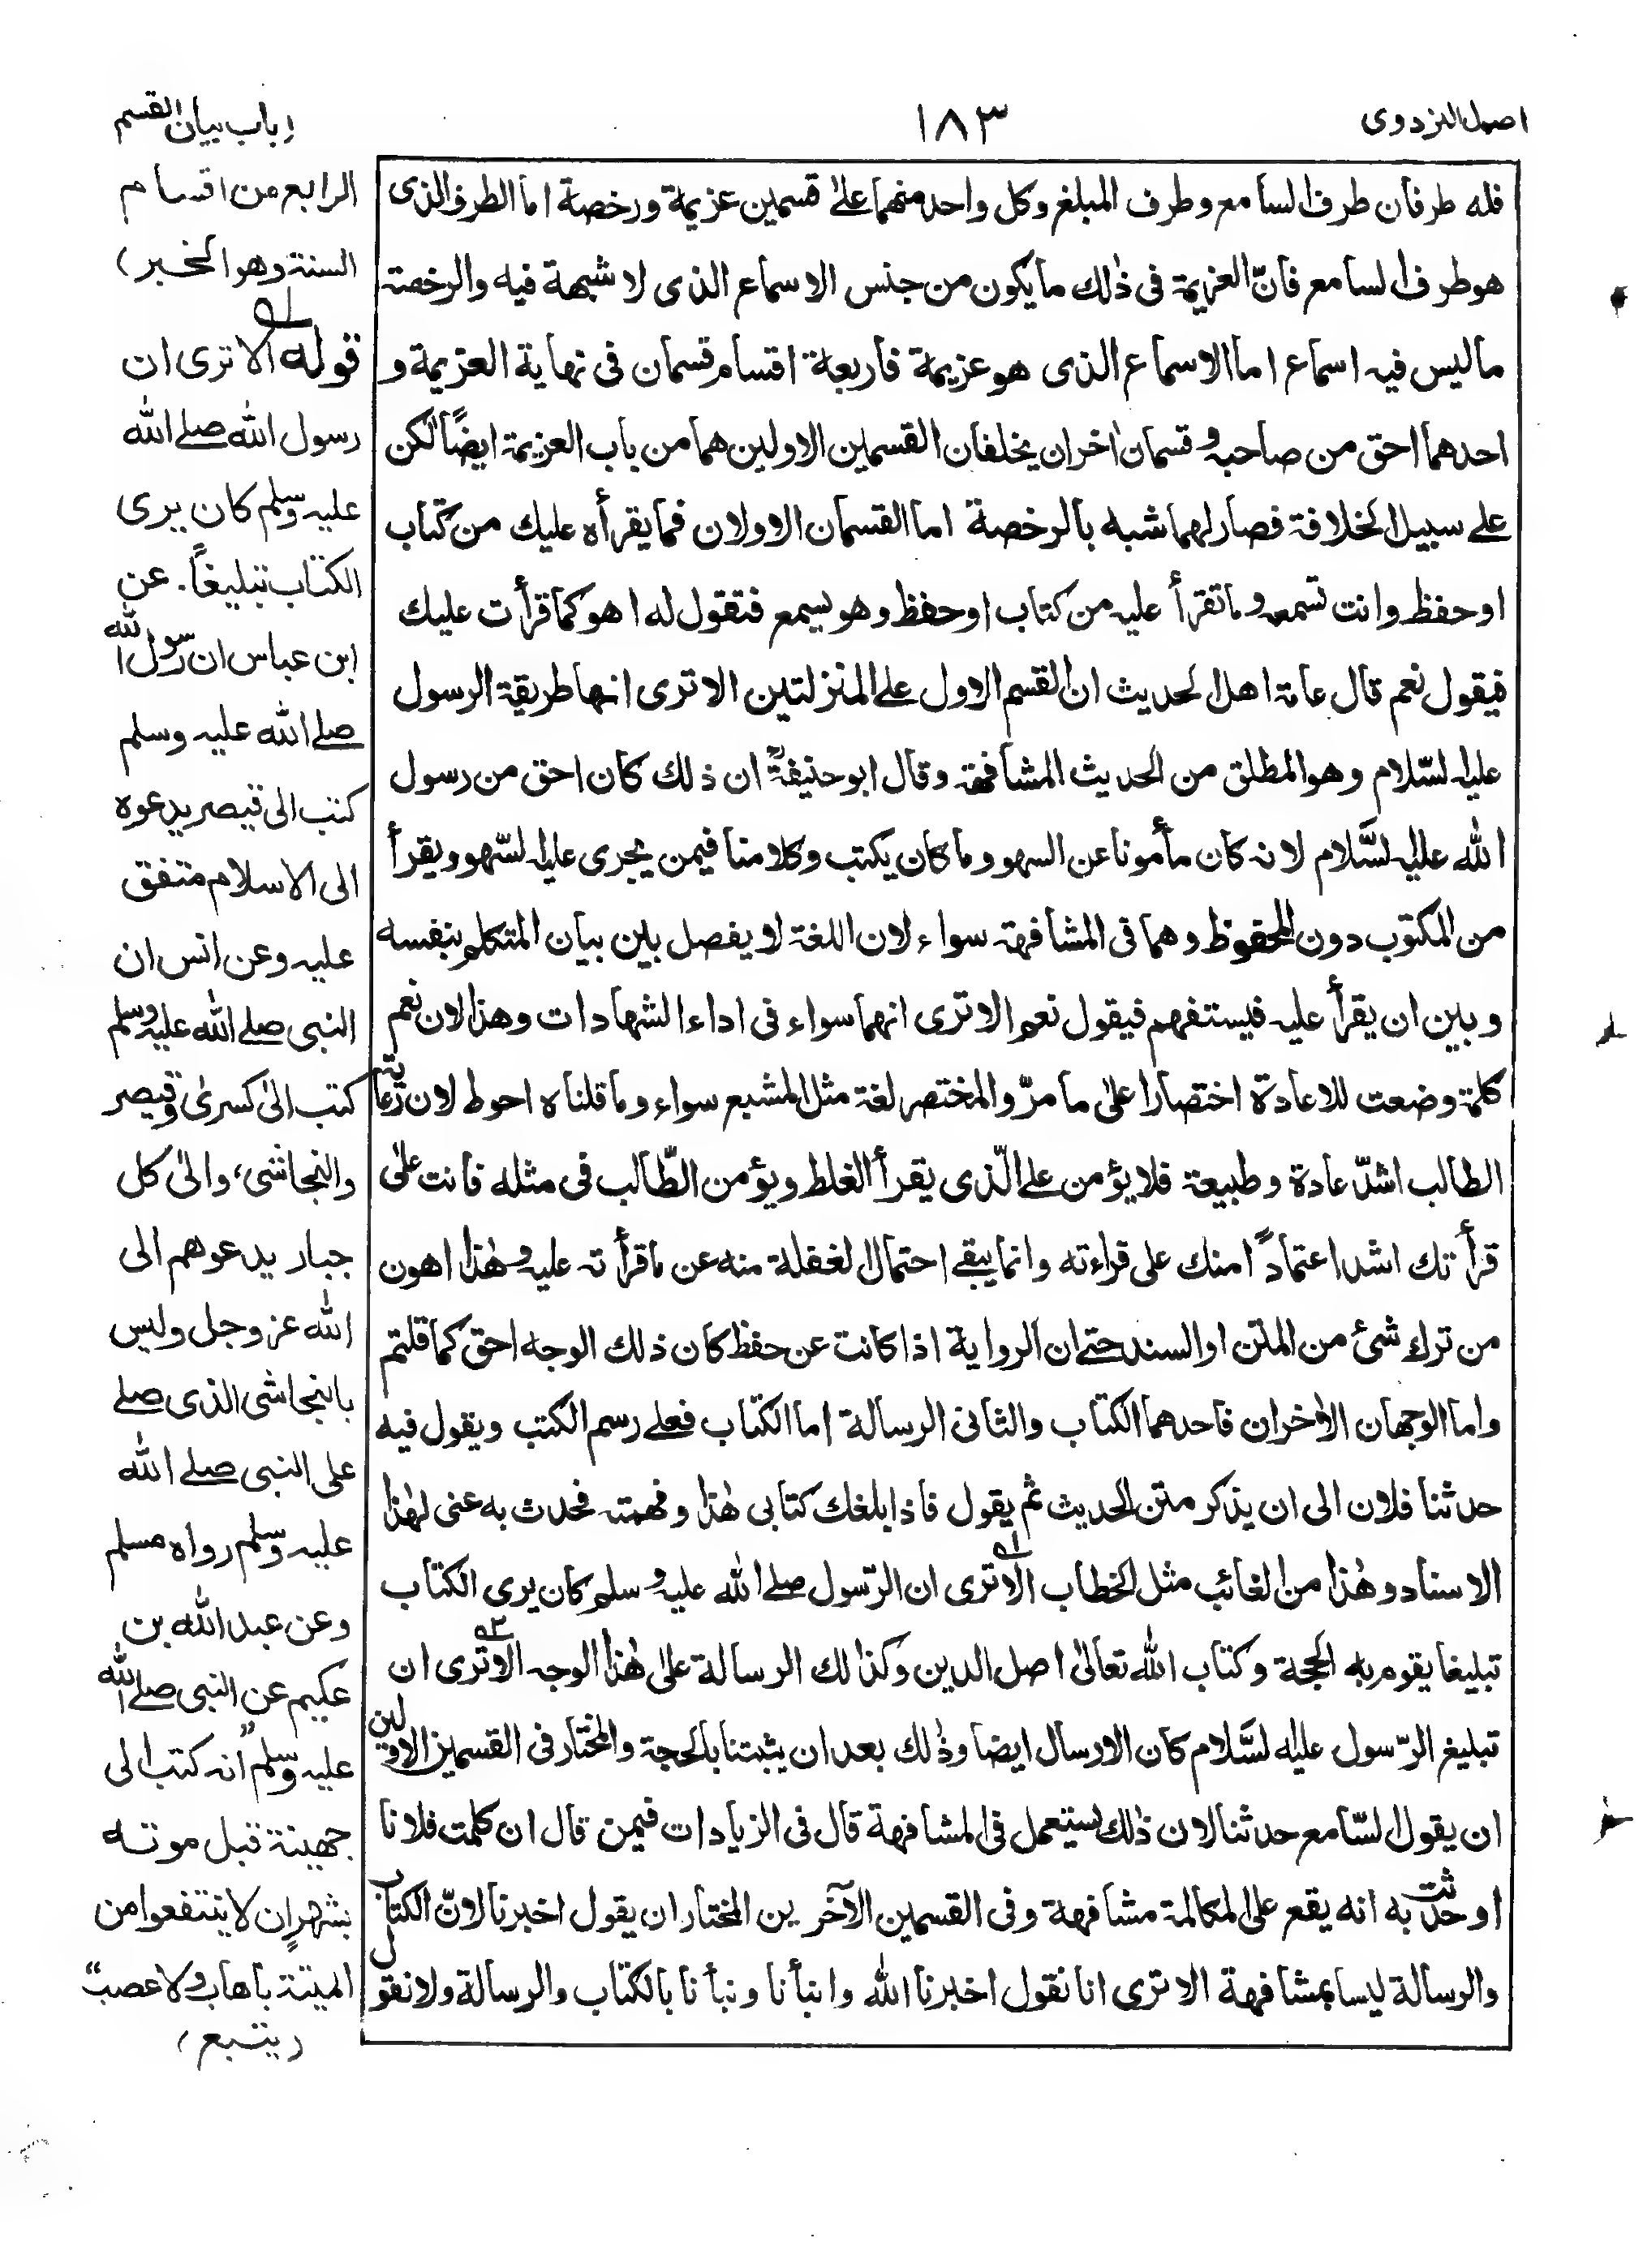 اصول البزدوی
١٨٣
(باب بيان القسم
الرابع من اقسام
السنة وهو الخبر)
فله طرفان طرف السامع وطرف المبلغ وكل واحد منهما على قسمين عزيمة ورخصة اما الطرف الذى
هو طرف السامع فانّ العزيمة فى ذٰلك ما يكون من جنس الاسماع الذى لا شبهة فيه والرخصة
ما ليس فيه اسماع اما الاسماع الذى هو عزيمة فاربعة اقسام قسمان فى نهاية العزيمة و
احدهما احق من صاحبه وقسمان اٰخران يخلفان القسمين الاولين هما من باب العزيمة ايضًا لٰكن
على سبيل الخلافة فصار لهما شبه بالرخصة اما القسمان الاولان فما يقرأه عليك من كتاب
او حفظ وانت تسمعه وما تقرأ عليه من كتاب او حفظ وهو يسمع فتقول له اهو كما قرأت عليك
فيقول نعم قال عامة اهل الحديث ان القسم الاول على المنزلتين الا ترى انها طريقة الرسول
عليه السّلام وهو المطلق من الحديث المشافهة وقال ابو حنيفةؒ ان ذلك كان احق من رسول
الله عليه السَّلام لانه كان مأمونا عن السهو وما كان يكتب وكلامنا فيمن يجرى عليه السّهو ويقرأ
من المكتوب دون المحفوظ وهما فى المشافهة سواء لان اللغة لا يفصل بين بيان المتكلم بنفسه
وبين ان يقرأ عليه فيستفهم فيقول نعم الا ترى انهما سواء فى اداء الشهادات وهذا لان نعم
كلمة وضعت للاعادة اختصارا على ما مرّ والمختصر لغة مثل المشبع سواء وما قلناه احوط لان رعاية
الطالب اشدّ عادة وطبيعة فلا يؤمن على الّذى يقرأ الغلط ويؤمن الطّالب فى مثله فانت علىٰ
قرأتك اشد اعتمادًا منك على قراءته وانما يبقے احتمال الغفلة منه عن ما قرأته عليه وهٰذا اهون
من ترك شئ من المتن او السند حتے ان الرواية اذا كانت عن حفظ كان ذلك الوجه احق كما قلتم
واما الوجهان الاٰخران فاحدهما الكتاب والثانى الرسالة اما الكتاب فعلے رسم الكتب ويقول فيه
حدثنا فلان الى ان يذكر متن الحديث ثم يقول فاذا بلغك كتابى هٰذا وفهمته فحدث به عنى لهٰذا
الاسناد وهٰذا من الغائب مثل الخطاب الا ترى ١ه ان الرّسول صلے الله عليه وسلم كان يرى الكتاب
تبليغا يقوم به الحجة وكتاب الله تعالىٰ اصل الدين وكذالك الرسالة علىٰ هٰذا الوجه الا ترى ٢ه ان
تبليغ الرّسول عليه السَّلام كان الارسال ايضا وذٰلك بعد ان يثبتنا بالحجة والمختار فى القسمين الاولين
ان يقول السّامع حدثنا لان ذٰلك يستعمل فى المشافهة قال فى الزيادات فيمن قال ان كلمت فلانا
او حدثت به انه يقع على المكالمة مشافهة وفى القسمين الآخرين المختار ان يقول اخبرنا لانّ الكتاب
والرسالة ليسا بمشافهة الا ترى انا نقول اخبرنا الله وانبأنا ونبأنا بالكتاب والرسالة ولا نقول
١ه قوله الا ترى ان
رسول الله صلے الله
عليه وسلم كان يرى
الكتاب تبليغاً. عن
ابن عباس ان رسول الله
صلے الله عليه وسلم
كتب الى قيصر يدعوه
الى الاسلام متفق
عليه وعن انس ان
النبى صلے الله عليه وسلم
كتب الىٰ كسرىٰ وقيصر
والنجاشى، والىٰ كل
جبار يدعوهم الى
الله عز وجل وليس
بالنجاشى الذى صلے
على النبى صلے الله
عليه وسلم رواه مسلم
وعن عبد الله بن
عكيم عن النبى صلے الله
عليه وسلم "انه كتب الى
جهينة قبل موته
بشهر ان لا ينتفعوا من
الميتة باهاب ولا عصب"
(يتبع)